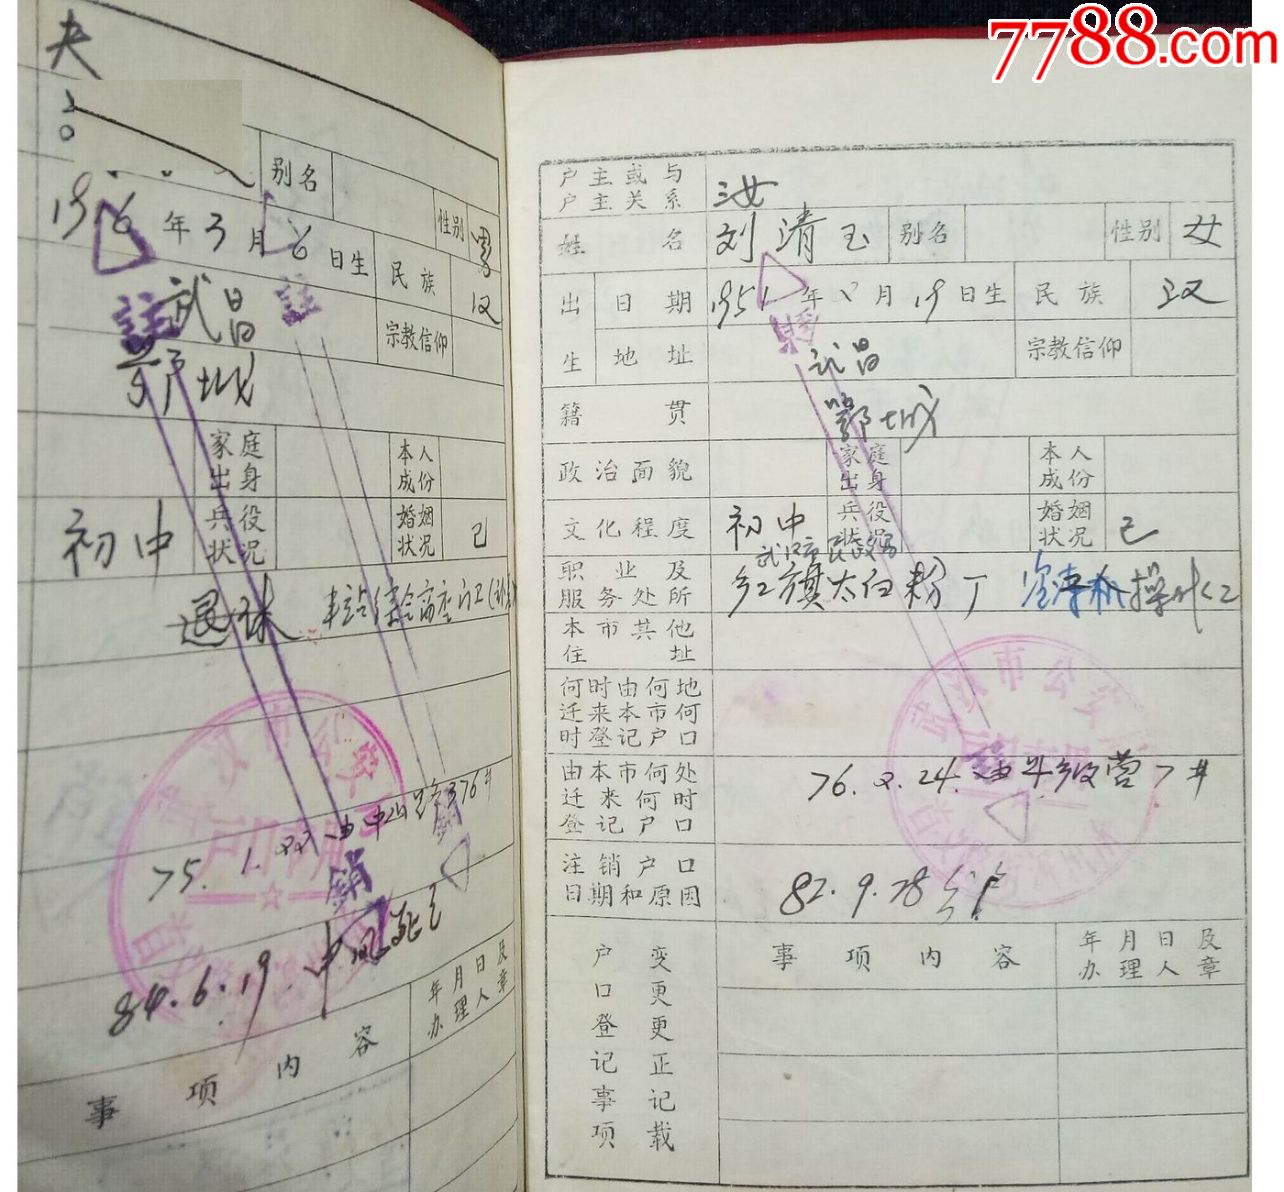 7788.com
夫
别名
性别 男
19 6 年 3 月 6 日生
民族 汉
註
註
武昌
宗教信仰
鄂城
家庭出身
本人成份
初中
兵役状况
婚姻状况 已
退休
75. 1. 22 由中山
銷
84. 6. 19. 中风死亡
事项内容
年月日及办理人章
户主或与户主关系
次女
姓名
刘清玉
别名
性别 女
出生
日期
1951年8月19日生
民族 汉
地址
武昌
宗教信仰
籍贯
鄂城
政治面貌
家庭出身
本人成份
文化程度
初中
兵役状况
婚姻状况 已
职业及服务处所
武汉市民政局
红旗太白粉厂
操作工
本市其他住址
何时由何地迁来本市何时登记户口
武汉市公安
由本市何处迁来何时登记户口
76. 2. 24. 由斗级营7#
注销户口日期和原因
82. 9. 28
户口登记事项
变更更正记载
事项内容
年月日及办理人章